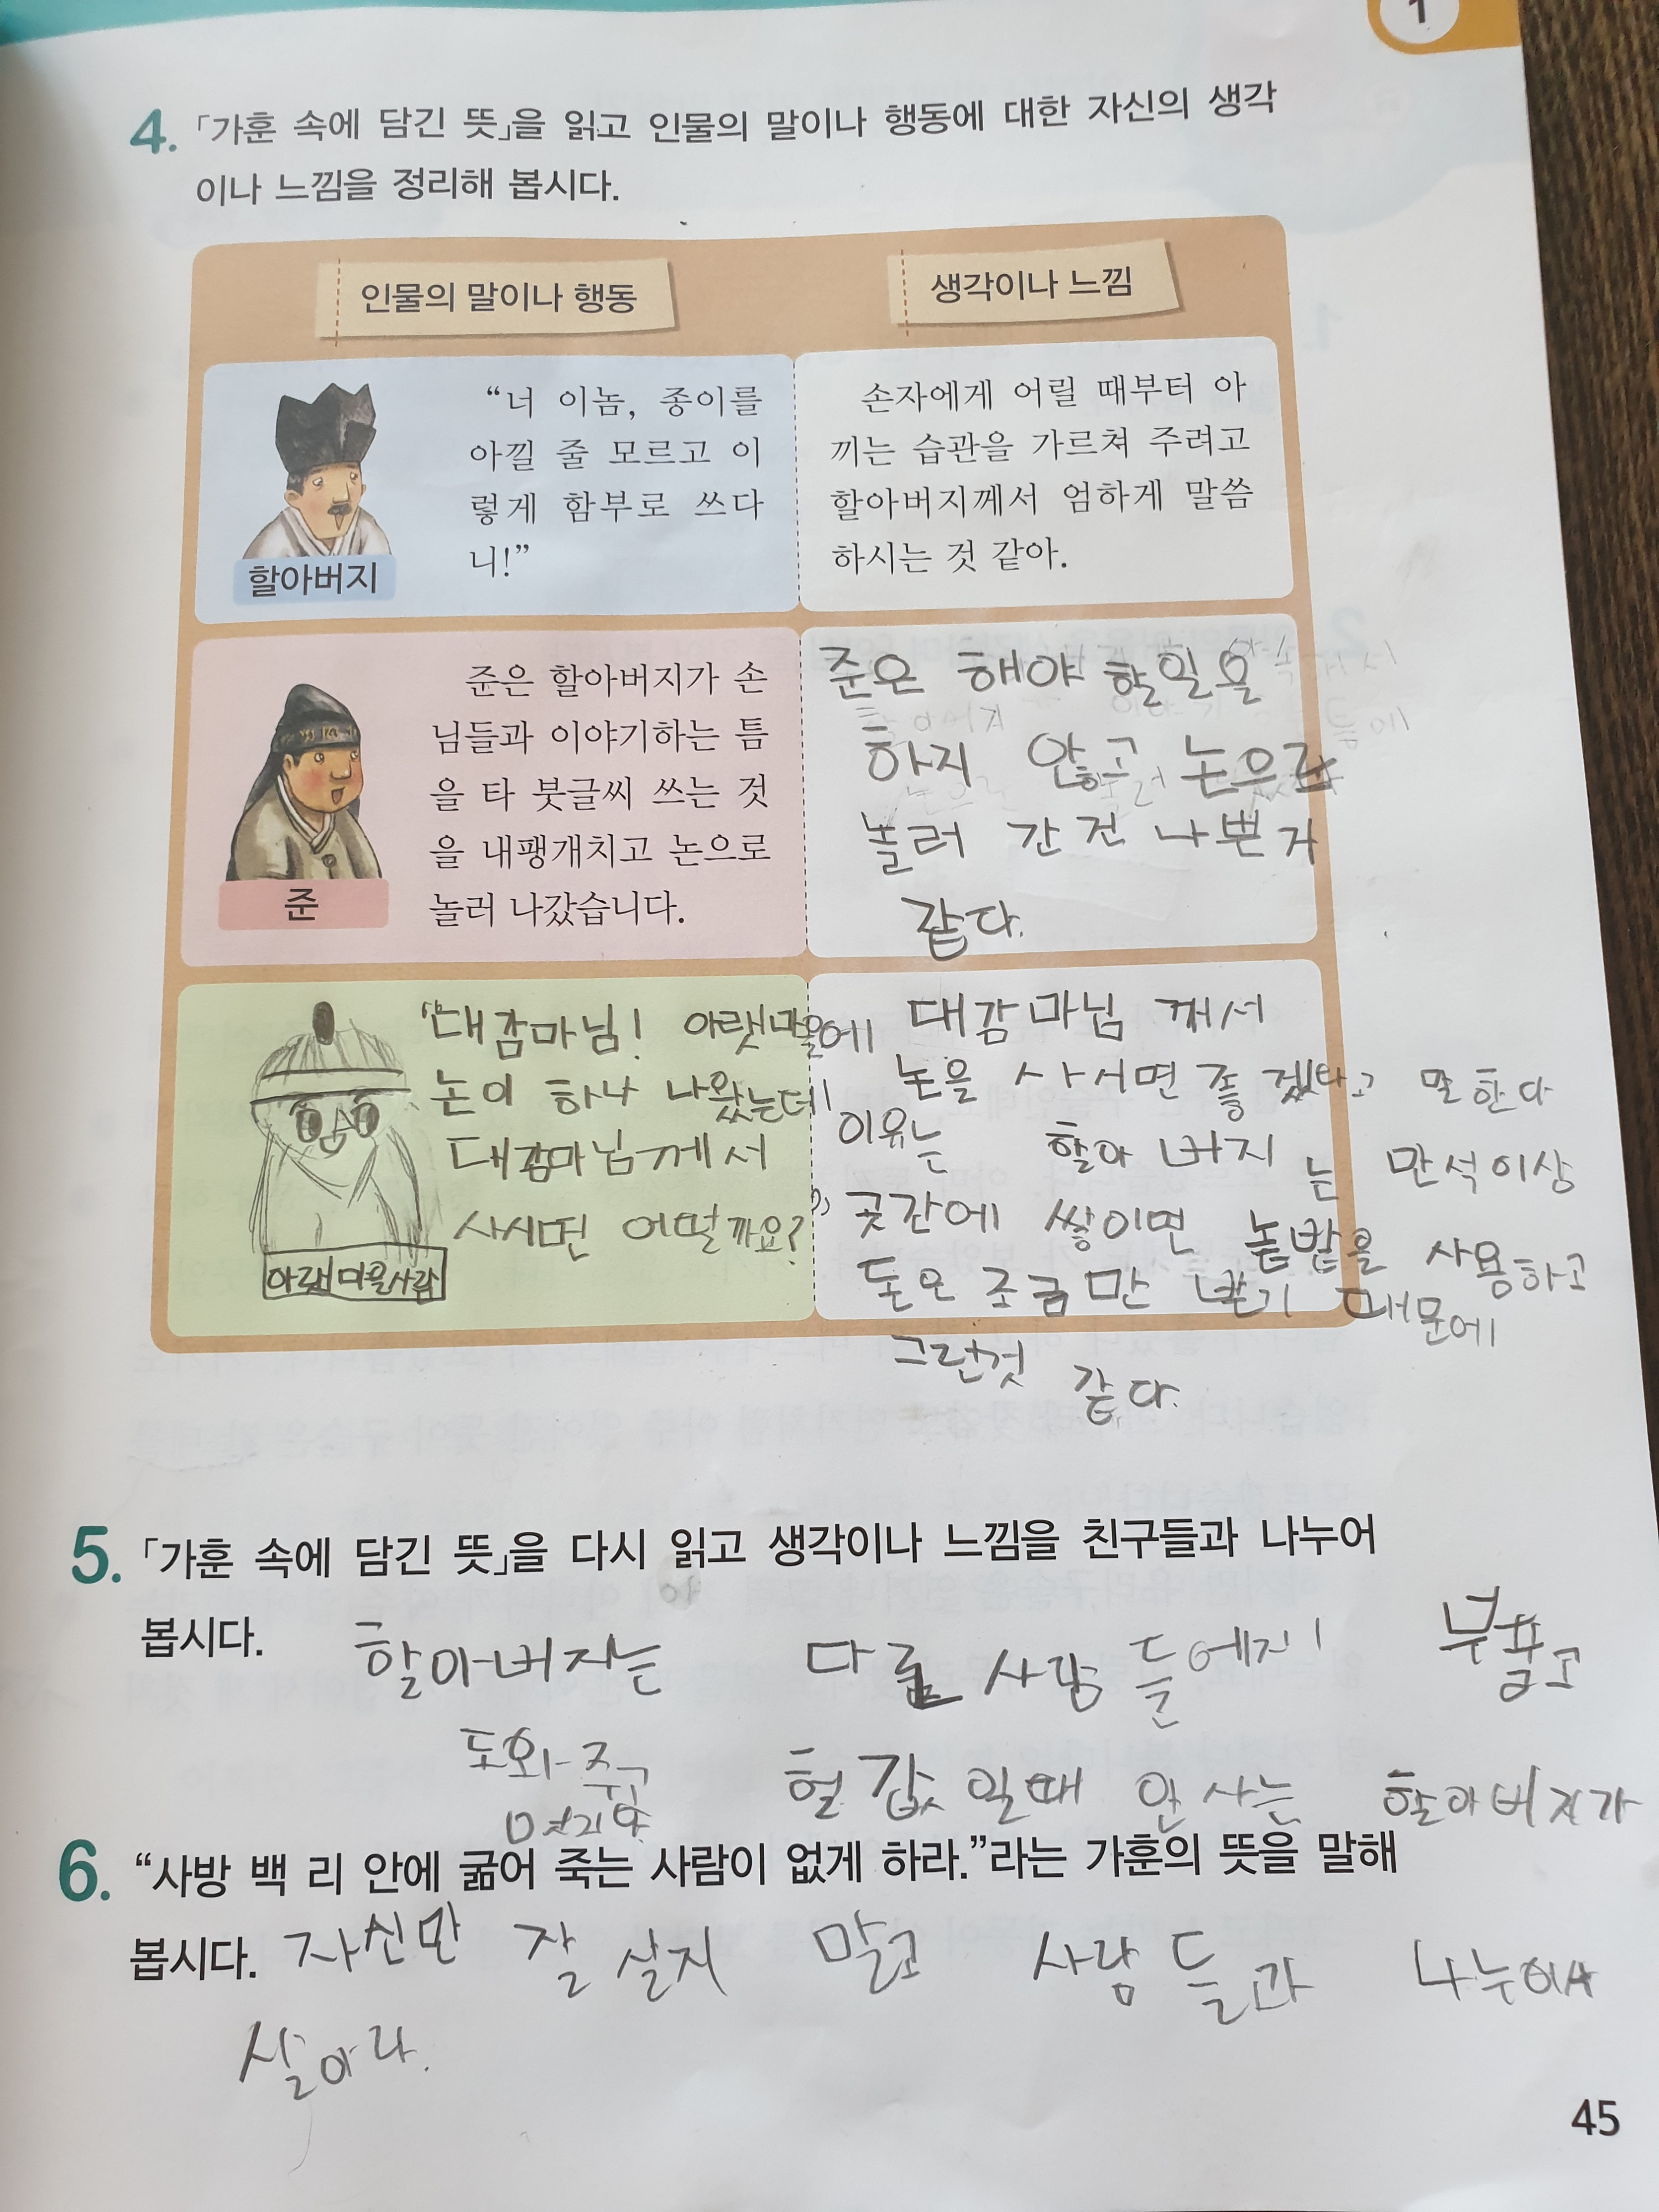 1
4. 「가훈 속에 담긴 뜻」을 읽고 인물의 말이나 행동에 대한 자신의 생각
이나 느낌을 정리해 봅시다.
인물의 말이나 행동
생각이나 느낌
“너 이놈, 종이를
아낄 줄 모르고 이
렇게 함부로 쓰다
니!”
할아버지
손자에게 어릴 때부터 아
끼는 습관을 가르쳐 주려고
할아버지께서 엄하게 말씀
하시는 것 같아.
준은 할아버지가 손
님들과 이야기하는 틈
을 타 붓글씨 쓰는 것
을 내팽개치고 논으로
놀러 나갔습니다.
준
준은 해야 할일을
하지 않고 논으로
놀러 간건 나쁜거
같다.
“대감마님! 아랫마을에
논이 하나 나왔는데
대감마님께서
사시면 어떨까요?”
아랫마을사람
대감마님 께서
논을 사시면 좋겠다고 말한다
이유는 할아버지는 만석이상
곳간에 쌓이면 논밭을 사용하고
돈은 조금만 받기 때문에
그런것 같다.
5. 「가훈 속에 담긴 뜻」을 다시 읽고 생각이나 느낌을 친구들과 나누어
봅시다. 할아버지는 다른 사람들에게 배풀고
도와주고 헐값일때 안사는 할아버지가
멋지다
6. “사방 백 리 안에 굶어 죽는 사람이 없게 하라.”라는 가훈의 뜻을 말해
봅시다. 자신만 잘 살지 말고 사람들과 나누어
살아라.
45